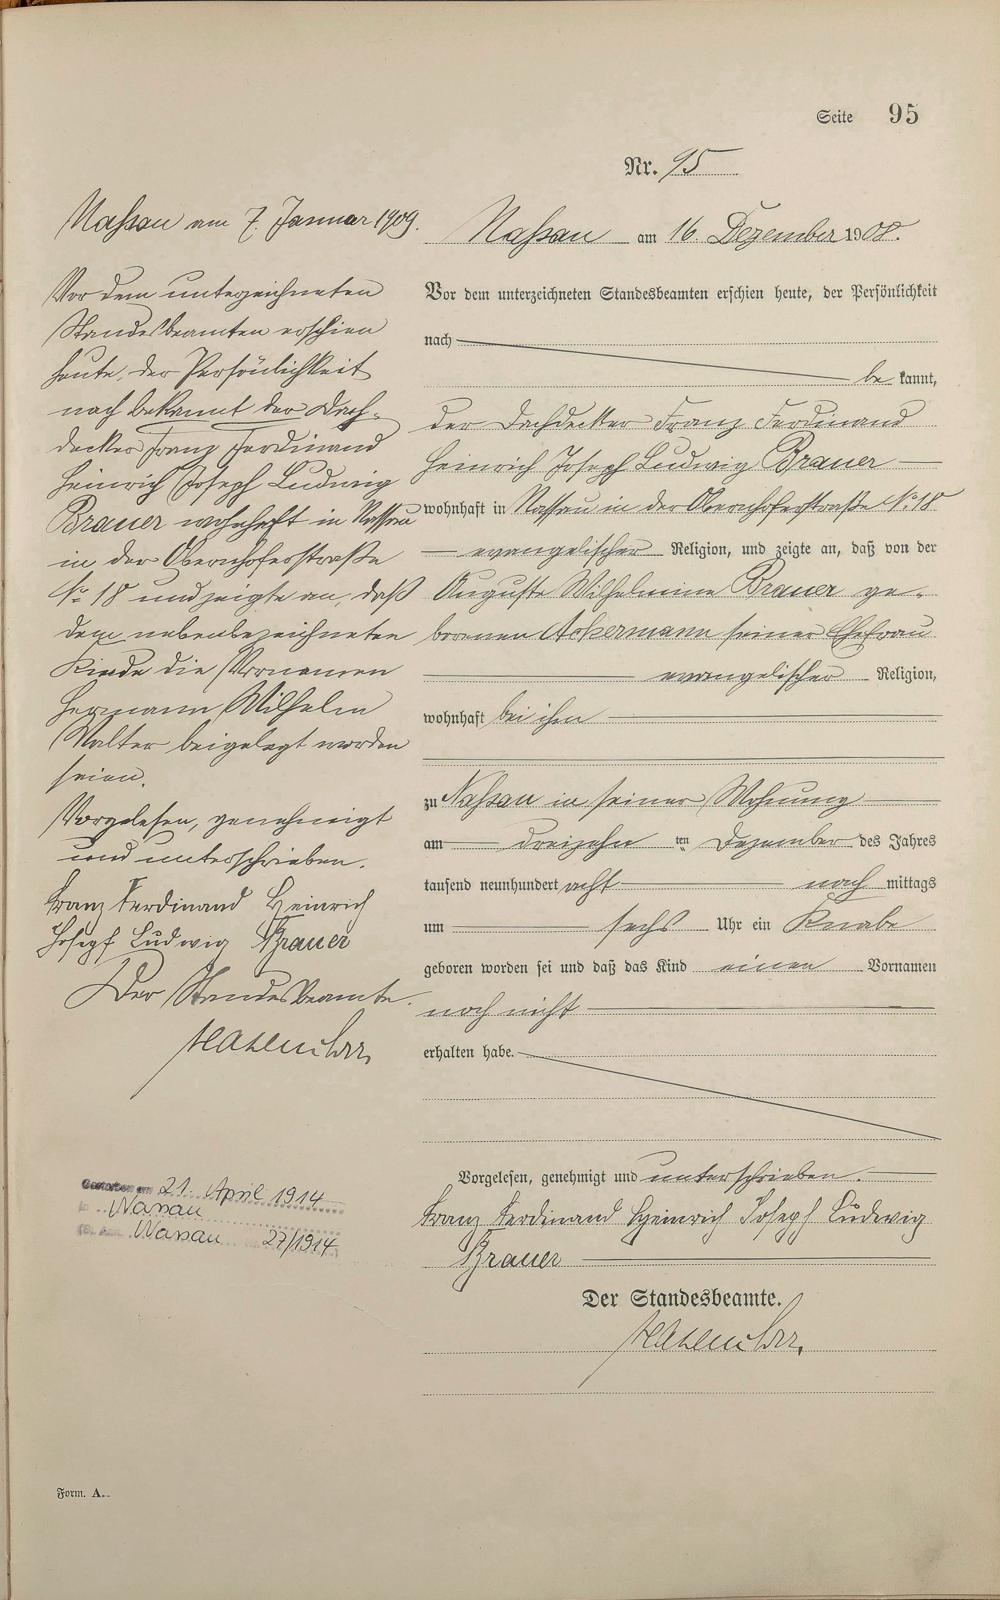 Seite 95
Nr. 95
Nassau am 7. Januar 1909.
Vor dem unterzeichneten
Standesbeamten erschien
heute, der Persönlichkeit
nach bekannt der Dach-
decker Franz Ferdinand
Heinrich Joseph Ludwig
Brauer wohnhaft in Nassau
in der Obernhoferstraße
No 18 und zeigte an, daß
dem nebenbezeichneten
Kinde die Vornamen
Hermann Wilhelm
Walter beigelegt worden
seien.
Vorgelesen, genehmigt
und unterschrieben.
Franz Ferdinand Heinrich
Joseph Ludwig Brauer
Der Standesbeamte.
Gestorben am 21. April 1914
in Nassau
Nassau 27/1914
Nassau am 16. Dezember 1908.
Vor dem unterzeichneten Standesbeamten erschien heute, der Persönlichkeit
nach
be kannt,
der Dachdecker Franz Ferdinand
Heinrich Joseph Ludwig Brauer
wohnhaft in Nassau in der Obernhoferstraße No 18
evangelischer Religion, und zeigte an, daß von der
Auguste Wilhelmine Brauer ge-
borenen Ackermann seiner Ehefrau
evangelischer Religion,
wohnhaft bei ihm
zu Nassau in seiner Wohnung
am dreizehn ten Dezember des Jahres
tausend neunhundert acht nach mittags
um sechs Uhr ein Knabe
geboren worden sei und daß das Kind einen Vornamen
noch nicht
erhalten habe.
Vorgelesen, genehmigt und unterschrieben.
Franz Ferdinand Heinrich Joseph Ludwig
Brauer
Der Standesbeamte.
Form. A.